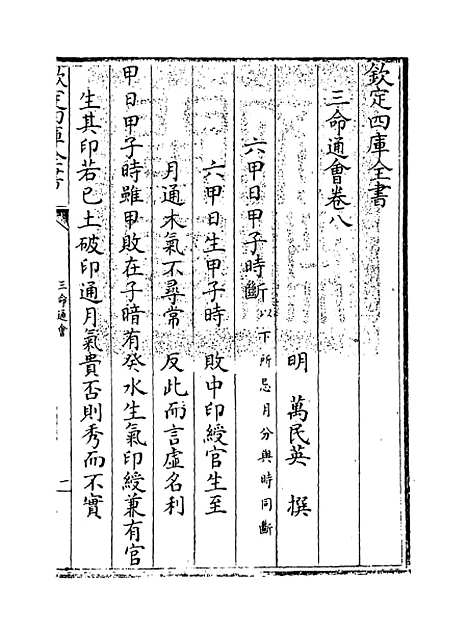 欽定四庫全書
三命通會卷八
明 萬民英 撰
六甲日甲子時斷 以下所忌月分與時同斷
六甲日生甲子時 敗中印綬官生至
月通木氣不尋常 反此而言虛名利
甲日甲子時雖甲敗在子暗有癸水生氣印綬兼有官
生其印若已土破印通月氣貴否則秀而不實
欽定四庫全書
三命通會
二